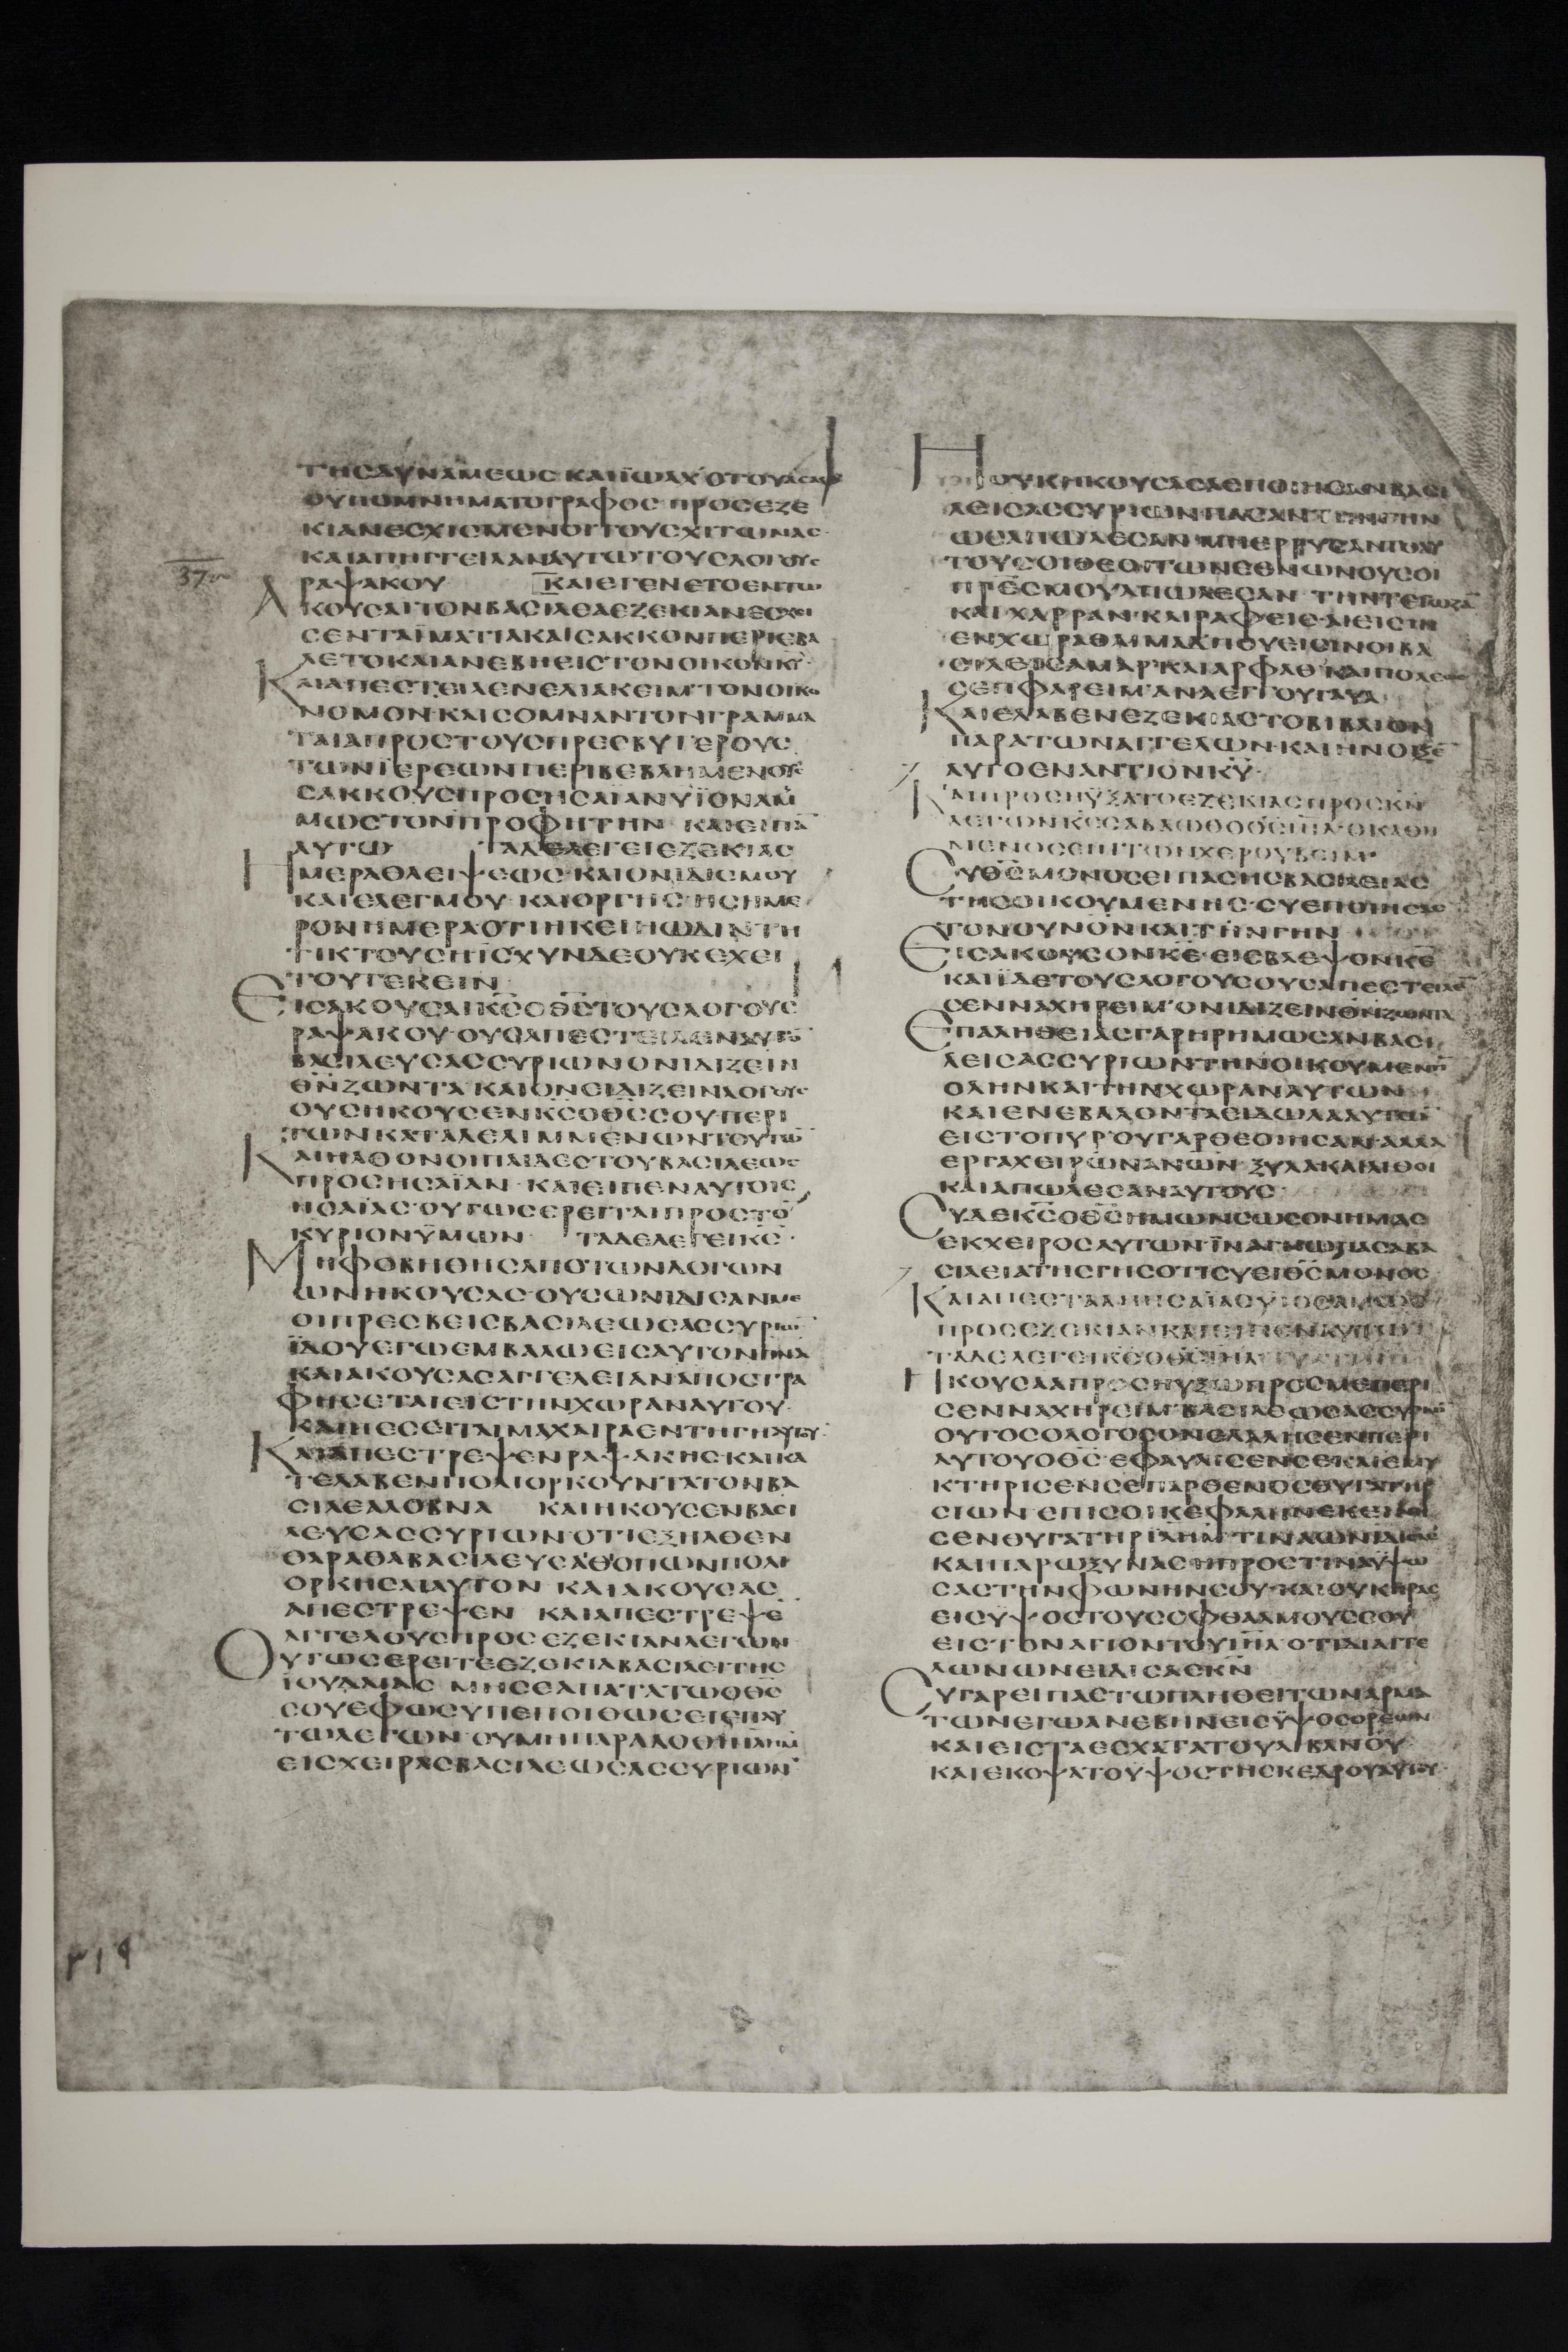 ΤΗСΔΥΝΑΜΕΩСΚΑΙΪΩΑΧΟΤΟΥΑСΑΦ
ΟΥΠΟΜΝΗΜΑΤΟΓΡΑΦΟС·ΠΡΟСΕΖΕ
ΚΙΑΝΕСΧΙСΜΕΝΟΙΤΟΥСΧΙΤΩΝΑС·
ΚΑΙΑΠΗΓΓΕΙΛΑΝΑΥΤΩΤΟΥСΛΟΓΟΥС
37
ΡΑΨΑΚΟΥ ΚΑΙΕΓΕΝΕΤΟΕΝΤΩ
ΑΚΟΥСΑΙΤΟΝΒΑСΙΛΕΑΕΖΕΚΙΑΝΕСΧΙ
СΕΝΤΑΪΜΑΤΙΑΚΑΙСΑΚΚΟΝΠΕΡΙΕΒΑ
ΛΕΤΟΚΑΙΑΝΕΒΗΕΙСΤΟΝΟΙΚΟΝΚΥ·
ΚΑΙΑΠΕСΤΕΙΛΕΝΕΛΙΑΚΕΙΜΤΟΝΟΙΚΟ
ΝΟΜΟΝ·ΚΑΙСΟΜΝΑΝΤΟΝΓΡΑΜΜΑ
ΤΑΙΑΠΡΟСΤΟΥСΠΡΕСΒΥΤΕΡΟΥС
ΤΩΝΪΕΡΕΩΝΠΕΡΙΒΕΒΛΗΜΕΝΟΥС
СΑΚΚΟΥСΠΡΟСΗСΑΪΑΝΥΪΟΝΑΜ
ΜΩСΤΟΝΠΡΟΦΗΤΗΝ ΚΑΙΕΙΠΑ̅
ΑΥΤΩ ΤΑΔΕΛΕΓΕΙΕΖΕΚΙΑС
ΗΜΕΡΑΘΛΕΙΨΕΩС·ΚΑΙΟΝΙΔΙСΜΟΥ
ΚΑΙΕΛΕΓΜΟΥ·ΚΑΙΟΡΓΗСΗСΗΜΕ
ΡΟΝΗΜΕΡΑΟΤΙΗΚΕΙΗΩΔΙΝΤΗ
ΤΙΚΤΟΥСΗΪСΧΥΝΔΕΟΥΚΕΧΕΙ
ΤΟΥΤΕΚΕΙΝ
ΕΙСΑΚΟΥСΑΙΚ̅С̅ΟΘ̅С̅ΤΟΥСΛΟΓΟΥС
ΡΑΨΑΚΟΥ·ΟΥСΑΠΕСΤΕΙΛΕΝΑΥΤΟ
ΒΑСΙΛΕΥСΑССΥΡΙΩΝΟΝΙΔΙΖΕΙΝ
Θ̅Ν̅ΖΩΝΤΑΚΑΙΟΝΕΙΔΙΖΕΙΝΛΟΓΟΥС
ΟΥСΗΚΟΥСΕΝΚ̅С̅ΟΘ̅С̅СΟΥΠΕΡΙ
ΤΩΝΚΑΤΑΛΕΛΙΜΜΕΝΩΝΤΟΥΤΩ̅
ΚΑΙΗΛΘΟΝΟΙΠΑΙΔΕСΤΟΥΒΑСΙΛΕΩС
ΠΡΟСΗСΑΪΑΝ·ΚΑΙΕΙΠΕΝΑΥΤΟΙС
ΗСΑΪΑС·ΟΥΤΩСΕΡΕΙΤΑΙΠΡΟСΤΟ̅
ΚΥΡΙΟΝΫΜΩΝ ΤΑΔΕΛΕΓΕΙΚ̅С̅·
ΜΗΦΟΒΗΘΗСΑΠΟΤΩΝΛΟΓΩΝ
ΩΝΗΚΟΥСΑС·ΟΥСΩΝΙΔΙСΑΝΜΕ
ΟΙΠΡΕСΒΕΙСΒΑСΙΛΕΩСΑССΥΡΙΩ̅
ΪΔΟΥΕΓΩΕΜΒΑΛΩΕΙСΑΥΤΟΝΠΝΑ
ΚΑΙΑΚΟΥСΑСΑΓΓΕΛΕΙΑΝΑΠΟСΤΡΑ
ΦΗСΕΤΑΙΕΙСΤΗΝΧΩΡΑΝΑΥΤΟΥ·
ΚΑΙΠΕСΕΙΤΑΙΜΑΧΑΙΡΑΕΝΤΗΓΗΑΥΤΟΥ·
ΚΑΙΑΠΕСΤΡΕΨΕΝΡΑΨΑΚΗС·ΚΑΙΚΑ
ΤΕΛΑΒΕΝΠΟΛΙΟΡΚΟΥΝΤΑΤΟΝΒΑ
СΙΛΕΑΛΟΒΝΑ ΚΑΙΗΚΟΥСΕΝΒΑСΙ
ΛΕΥСΑССΥΡΙΩΝ·ΟΤΙΕΞΗΛΘΕΝ
ΘΑΡΑΘΑΒΑСΙΛΕΥСΑΙΘΙΟΠΩΝΠΟΛΙ
ΟΡΚΗСΑΙΑΥΤΟΝ ΚΑΙΑΚΟΥСΑС
ΑΠΕСΤΡΕΨΕΝ ΚΑΙΑΠΕСΤΡΕΨΕ̅
ΑΓΓΕΛΟΥСΠΡΟСΕΖΕΚΙΑΝΛΕΓΩΝ
ΟΥΤΩСΕΡΕΙΤΕΕΖΕΚΙΑΒΑСΙΛΕΙΤΗС
ΙΟΥΔΑΙΑС ΜΗСΕΑΠΑΤΑΤΩΟΘ̅С̅
СΟΥΕΦΩСΥΠΕΠΟΙΘΩСΕΙΕΠΑΥ
ΤΩΛΕΓΩΝ·ΟΥΜΗΠΑΡΑΔΟΘΗΪΛΗΜ
ΕΙСΧΕΙΡΑСΒΑСΙΛΕΩСΑССΥΡΙΩΝ
Η ΟΥΚΗΚΟΥСΑСΑΕΠΟΙΗСΑΝΒΑСΙ
ΛΕΙСΑССΥΡΙΩΝΠΑСΑΝΤΗΝΓΗΝ
ΩСΑΠΩΛΕСΑΝ·ΜΗΕΡΡΥСΑΝΤΟΑΥ
ΤΟΥСΟΙΘΕΟΙΤΩΝΕΘΝΩΝΟΥСΟΙ
ΠΡ̅Ε̅СΜΟΥΑΠΩΛΕСΑΝ ΤΗΝΤΕΓΩΖΑ̅
ΚΑΙΧΑΡΡΑΝ·ΚΑΙΡΑΦΕΙС·ΑΙΕΙСΙΝ
ΕΝΧΩΡΑΘΑΙΜΑΔ·ΠΟΥΕΙСΙΝΟΙΒΑ
СΙΛΕΙСΑΜΑΡ·ΚΑΙΑΡΦΑΘ·ΚΑΙΠΟΛΕΩС
СΕΠΦΑΡΕΙΜ·ΑΝΑΕΓΓΟΥΓΑΥΑ
ΚΑΙΕΛΑΒΕΝΕΖΕΚΙΑСΤΟΒΙΒΛΙΟΝ
ΠΑΡΑΤΩΝΑΓΓΕΛΩΝ·ΚΑΙΗΝΟΙΞΕ̅
ΑΥΤΟΕΝΑΝΤΙΟΝΚ̅Υ̅·
ΚΑΙΠΡΟСΗΥΞΑΤΟΕΖΕΚΙΑСΠΡΟСΚ̅Ν̅
ΛΕΓΩΝΚ̅С̅СΑΒΑΩΘΟΘ̅С̅Ι̅Η̅Λ̅·ΟΚΑΘΗ
ΜΕΝΟСΕΠΙΤΩΝΧΕΡΟΥΒΕΙΜ·
СΥΘ̅С̅ΜΟΝΟСΕΙΠΑСΗСΒΑСΙΛΕΙΑС
ΤΗСΟΙΚΟΥΜΕΝΗС·СΥΕΠΟΙΗСΑС
ΤΟΝΟΥΝΟΝΚΑΙΤΗΝΓΗΝ
ΕΙСΑΚΟΥСΟΝΚ̅Ε̅·ΕΙСΒΛΕΨΟΝΚ̅Ε̅
ΚΑΙΪΔΕΤΟΥСΛΟΓΟΥСΟΥСΑΠΕСΤΕΙΛΕ̅
СΕΝΝΑΧΗΡΕΙΜ·ΟΝΙΔΙΖΕΙΝΘ̅Ν̅ΖΩΝΤΑ
ΕΠΑΛΗΘΕΙΑСΓΑΡΗΡΗΜΩСΑΝΒΑСΙ
ΛΕΙСΑССΥΡΙΩΝΤΗΝΟΙΚΟΥΜΕΝΗ̅
ΟΛΗΝΚΑΙΤΗΝΧΩΡΑΝΑΥΤΩΝ
ΚΑΙΕΝΕΒΑΛΟΝΤΑΕΙΔΩΛΑΑΥΤΩ̅
ΕΙСΤΟΠΥΡ·ΟΥΓΑΡΘΕΟΙΗСΑΝ·ΑΛΛΑ
ΕΡΓΑΧΕΙΡΩΝΑΝ̅Ω̅Ν̅·ΞΥΛΑΚΑΙΛΙΘΟΙ
ΚΑΙΑΠΩΛΕСΑΝΑΥΤΟΥС
СΥΔΕΚ̅С̅ΟΘ̅С̅ΗΜΩΝСΩСΟΝΗΜΑС
ΕΚΧΕΙΡΟСΑΥΤΩΝ·ΪΝΑΓΝΩΠΑСΑΒΑ
СΙΛΕΙΑΤΗСΓΗСΟΤΙСΥΕΙΘ̅С̅ΜΟΝΟС
ΚΑΙΑΠΕСΤΑΛΗΗСΑΪΑСΥΪΟСΑΜΩС
ΠΡΟСΕΖΕΚΙΑΝΚΑΙΕΙΠΕΝΑΥΤΩ
ΤΑΔΕΛΕΓΕΙΚ̅С̅ΟΘ̅С̅Ι̅Η̅Λ̅
ΗΚΟΥСΑΑΠΡΟСΗΥΞΩΠΡΟСΜΕΠΕΡΙ
СΕΝΝΑΧΗΡΕΙΜ·ΒΑСΙΛΕΩСΑССΥΡΙΩ̅
ΟΥΤΟСΟΛΟΓΟСΟΝΕΛΑΛΗСΕΝΠΕΡΙ
ΑΥΤΟΥΟΘ̅С̅·ΕΦΑΥΛΙСΕΝСΕΚΑΙΕΜΥ
ΚΤΗΡΙСΕΝСΕΠΑΡΘΕΝΟСΘΥΓΑΤΗΡ
СΙΩΝ·ΕΠΙСΟΙΚΕΦΑΛΗΝΕΚΕΙΝΗ
СΕΝΘΥΓΑΤΗΡΪΛΗΜ·ΤΙΝΑΩΝΙΔΙСΑС
ΚΑΙΠΑΡΩΞΥΝΑС·ΗΠΡΟСΤΙΝΑΫΨΩ
СΑСΤΗΝΦΩΝΗΝСΟΥ·ΚΑΙΟΥΚΗΡΑС
ΕΙСΥΨΟСΤΟΥСΟΦΘΑΛΜΟΥССΟΥ
ΕΙСΤΟΝΑΓΙΟΝΤΟΥΙ̅Η̅Λ̅·ΟΤΙΔΙΑΓΓΕ
ΛΩΝΩΝΕΙΔΙСΑСΚ̅Ν̅
СΥΓΑΡΕΙΠΑСΤΩΠΛΗΘΕΙΤΩΝΑΡΜΑ
ΤΩΝΕΓΩΑΝΕΒΗΝΕΙСΫΨΟСΟΡΕΩΝ
ΚΑΙΕΙСΤΑΕСΧΑΤΑΤΟΥΛΙΒΑΝΟΥ
ΚΑΙΕΚΟΨΑΤΟΥΨΟСΤΗСΚΕΔΡΟΥΑΥΤΟΥ
٣١٩